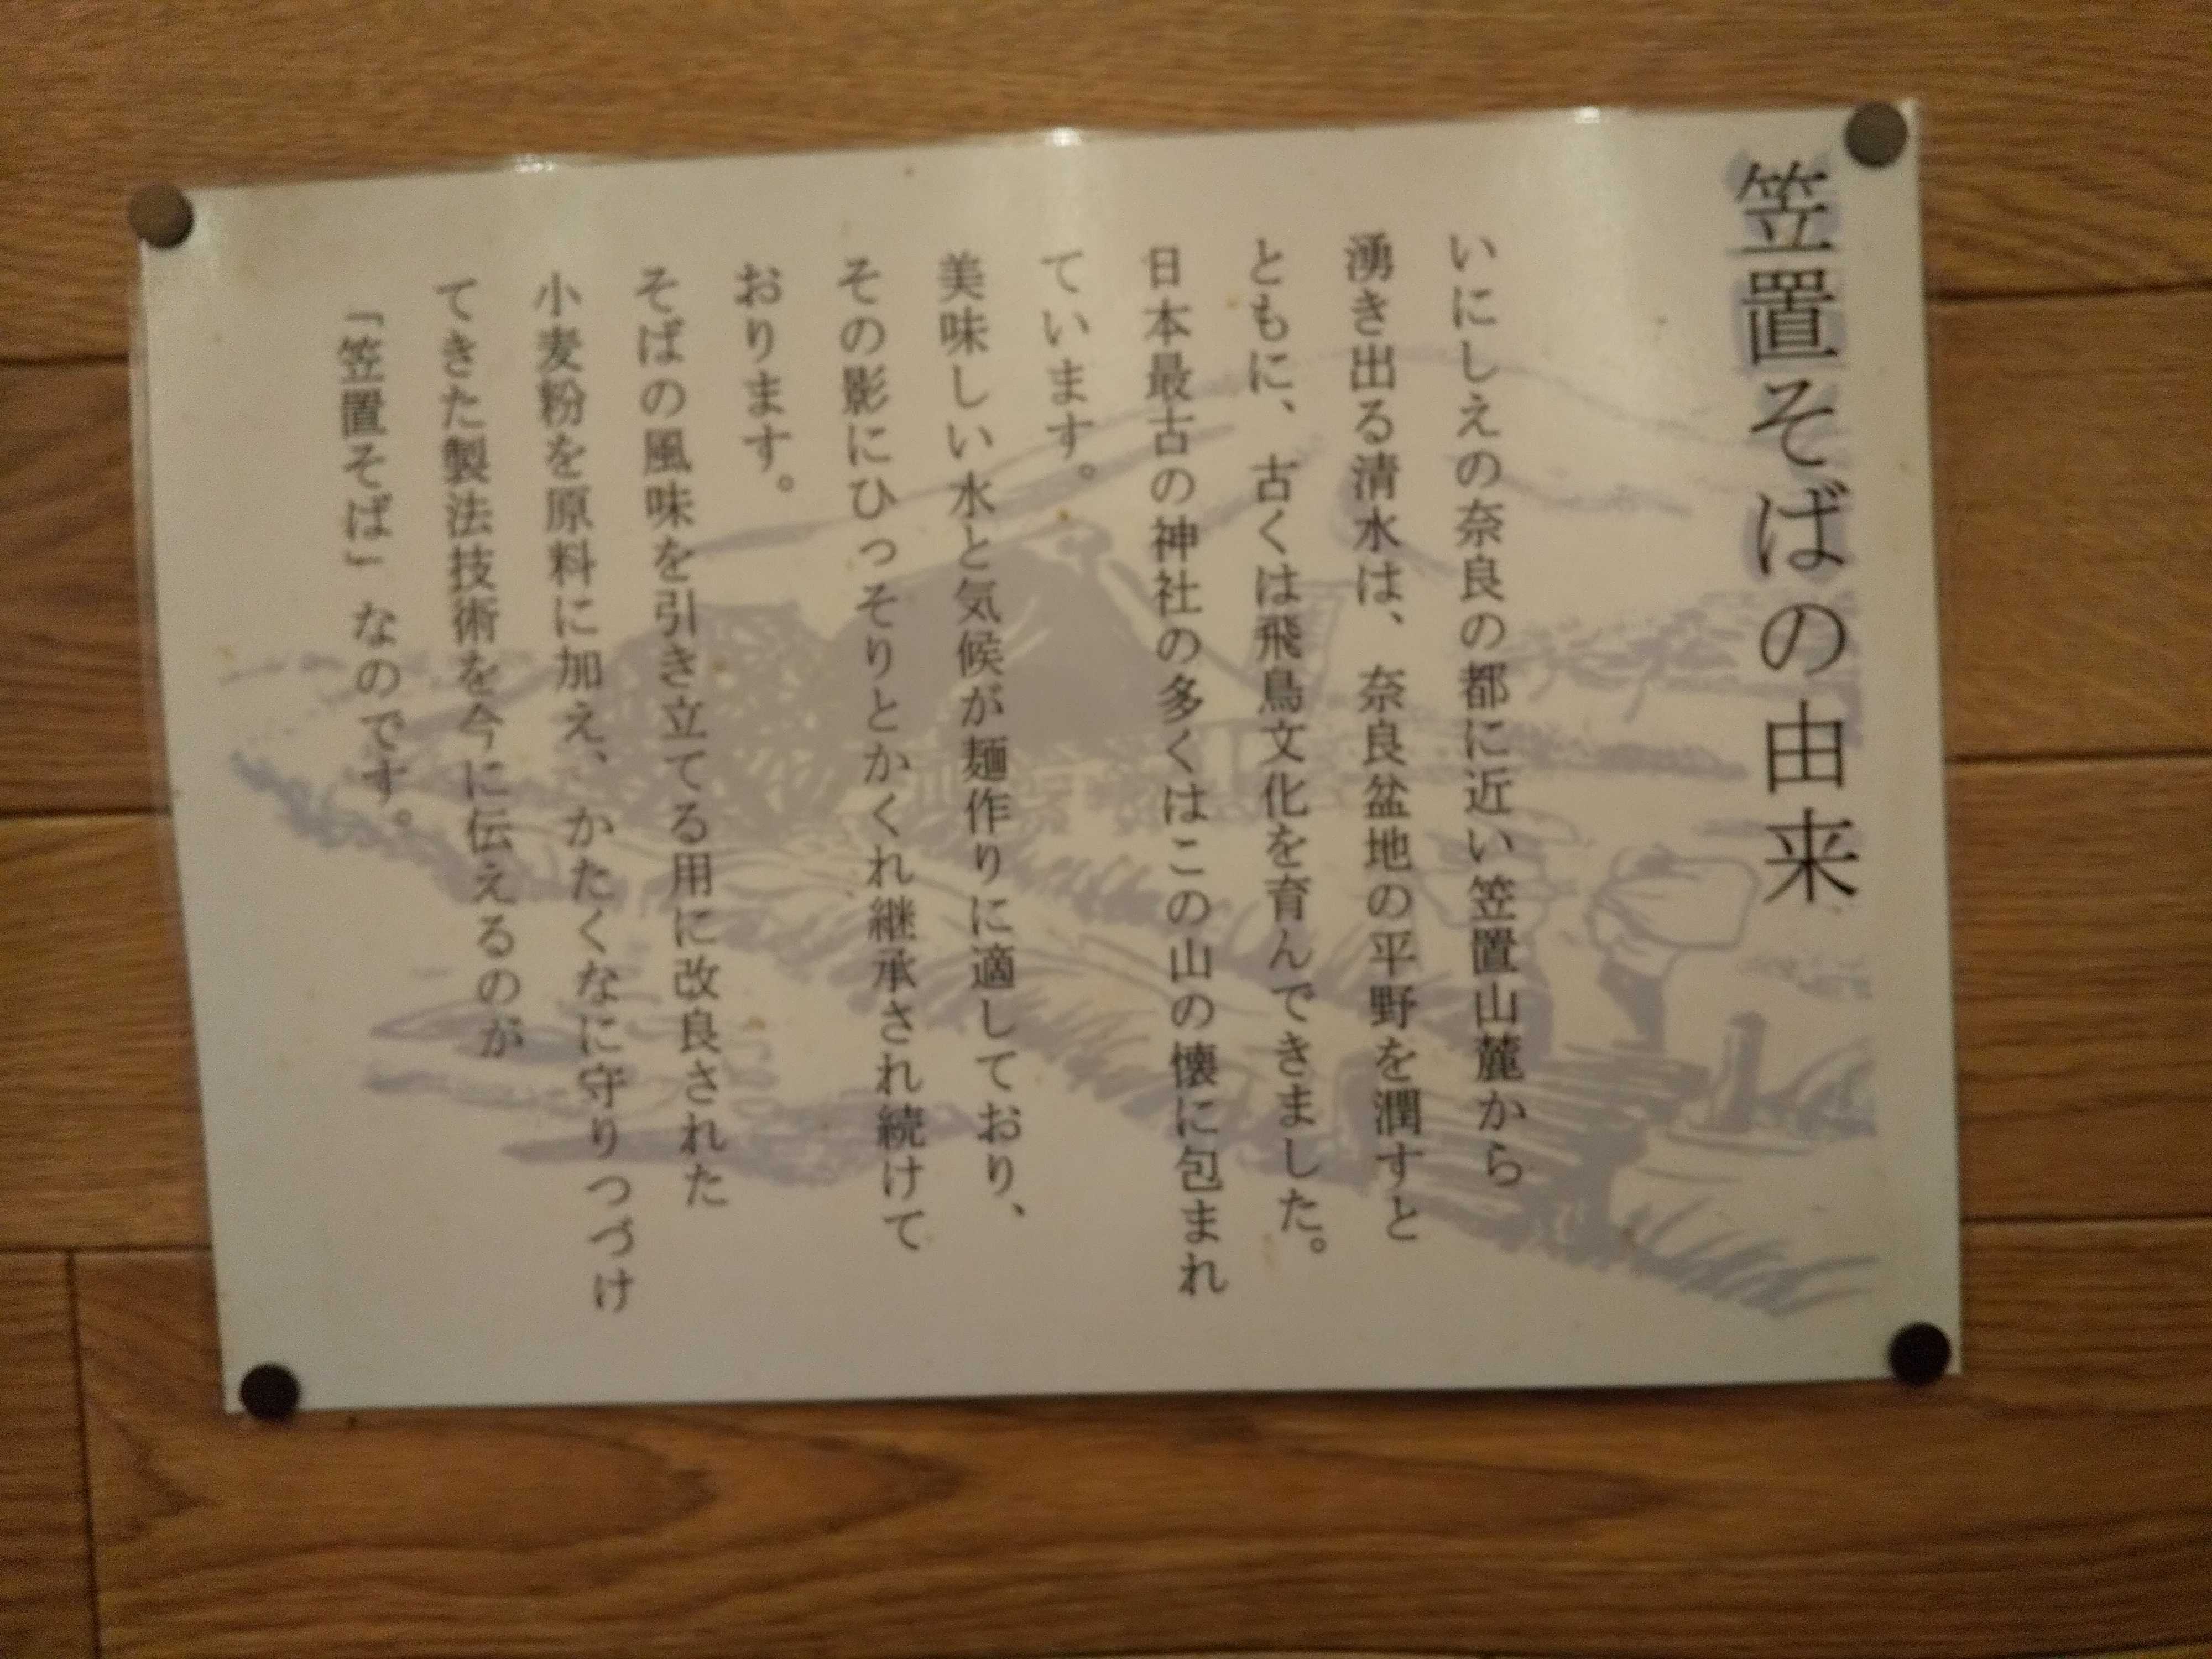 笠置そばの由来
いにしえの奈良の都に近い笠置山麓から
湧き出る清水は、奈良盆地の平野を潤すと
ともに、古くは飛鳥文化を育んできました。
日本最古の神社の多くはこの山の懐に包まれ
ています。
美味しい水と気候が麺作りに適しており、
その影にひっそりとかくれ継承され続けて
おります。
そばの風味を引き立てる用に改良された
小麦粉を原料に加え、かたくなに守りつづけ
てきた製法技術を今に伝えるのが
「笠置そば」なのです。